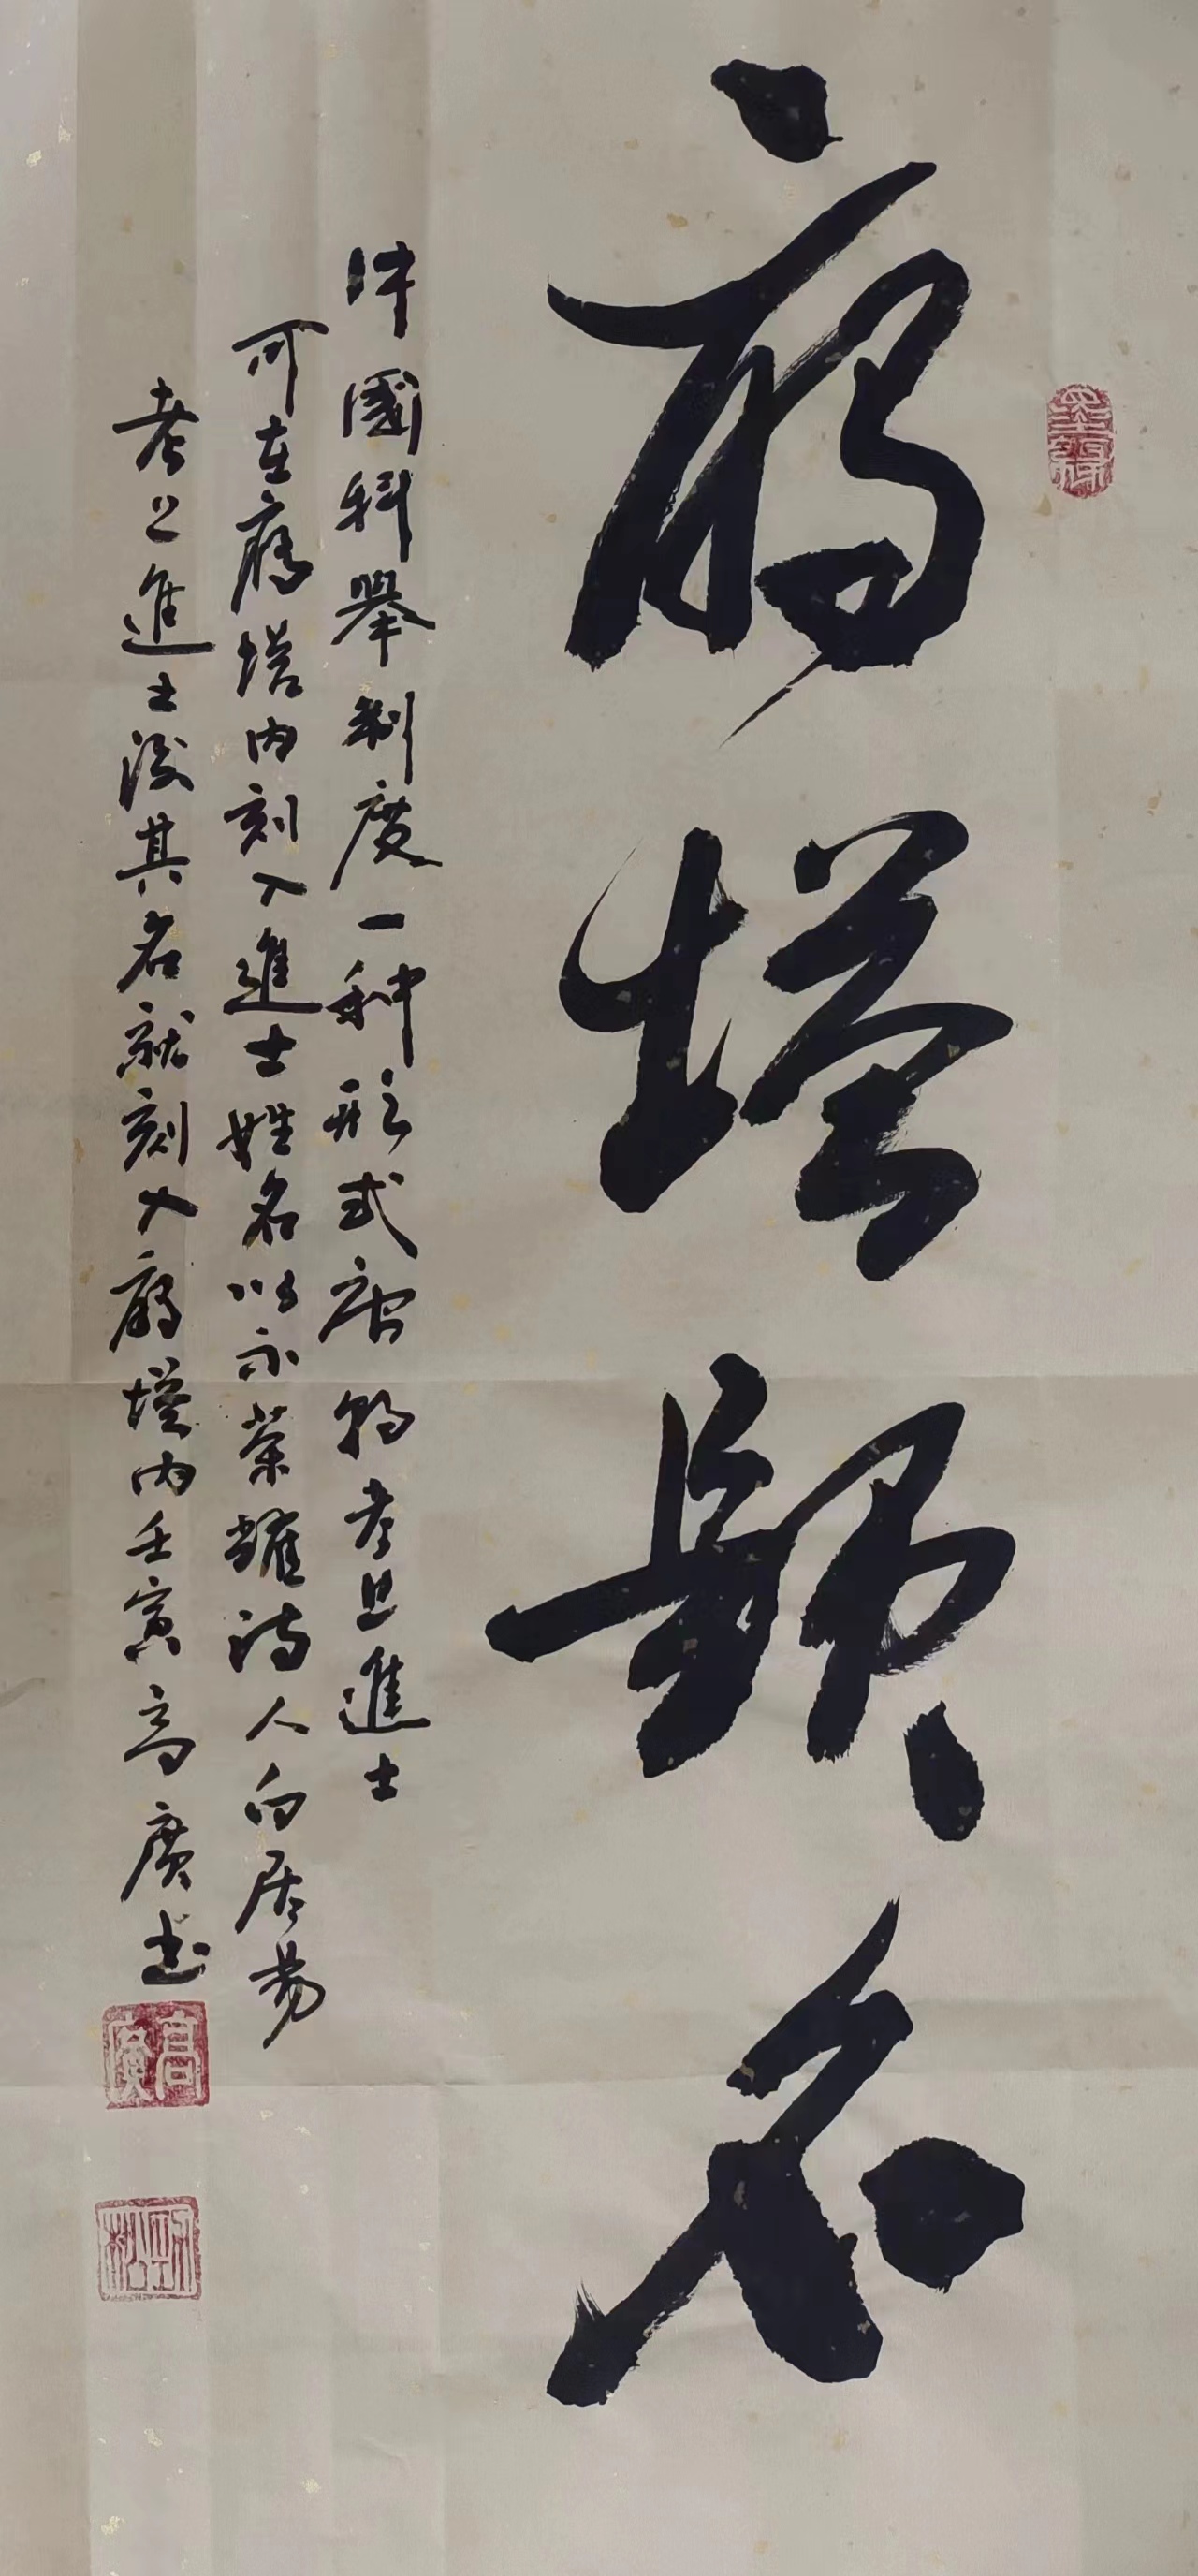 雁塔题名
中國科舉制度一种形式唐朝考且進士
可在雁塔内刻入進士姓名以示荣耀诗人白居易
考上進士後其名就刻入雁塔内壬寅高廣书
高廣